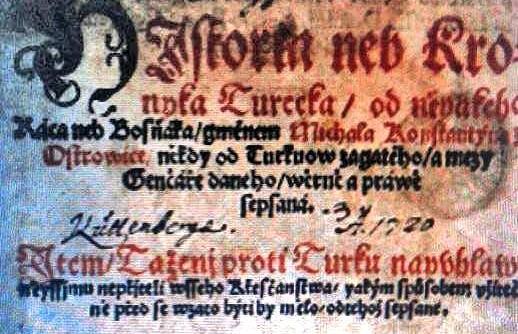 Hystorya neb Kro-
nyka Turecka/ od negakeho
Ráca neb Bosňáka/gménem Michala Konstantyna z
Ostrowice, někdy od Turkuow zagatého/a mezy
Genčáře daneho/wěrně a práwě
sepsaná.
Kuttenberge. A. 1720
Item/ Taženj proti Turku
neyssjmu nepřiteli wsseho Křesťanstwa/ yakým spůsobem
né před se wzato byti by mělo/ sepsané.